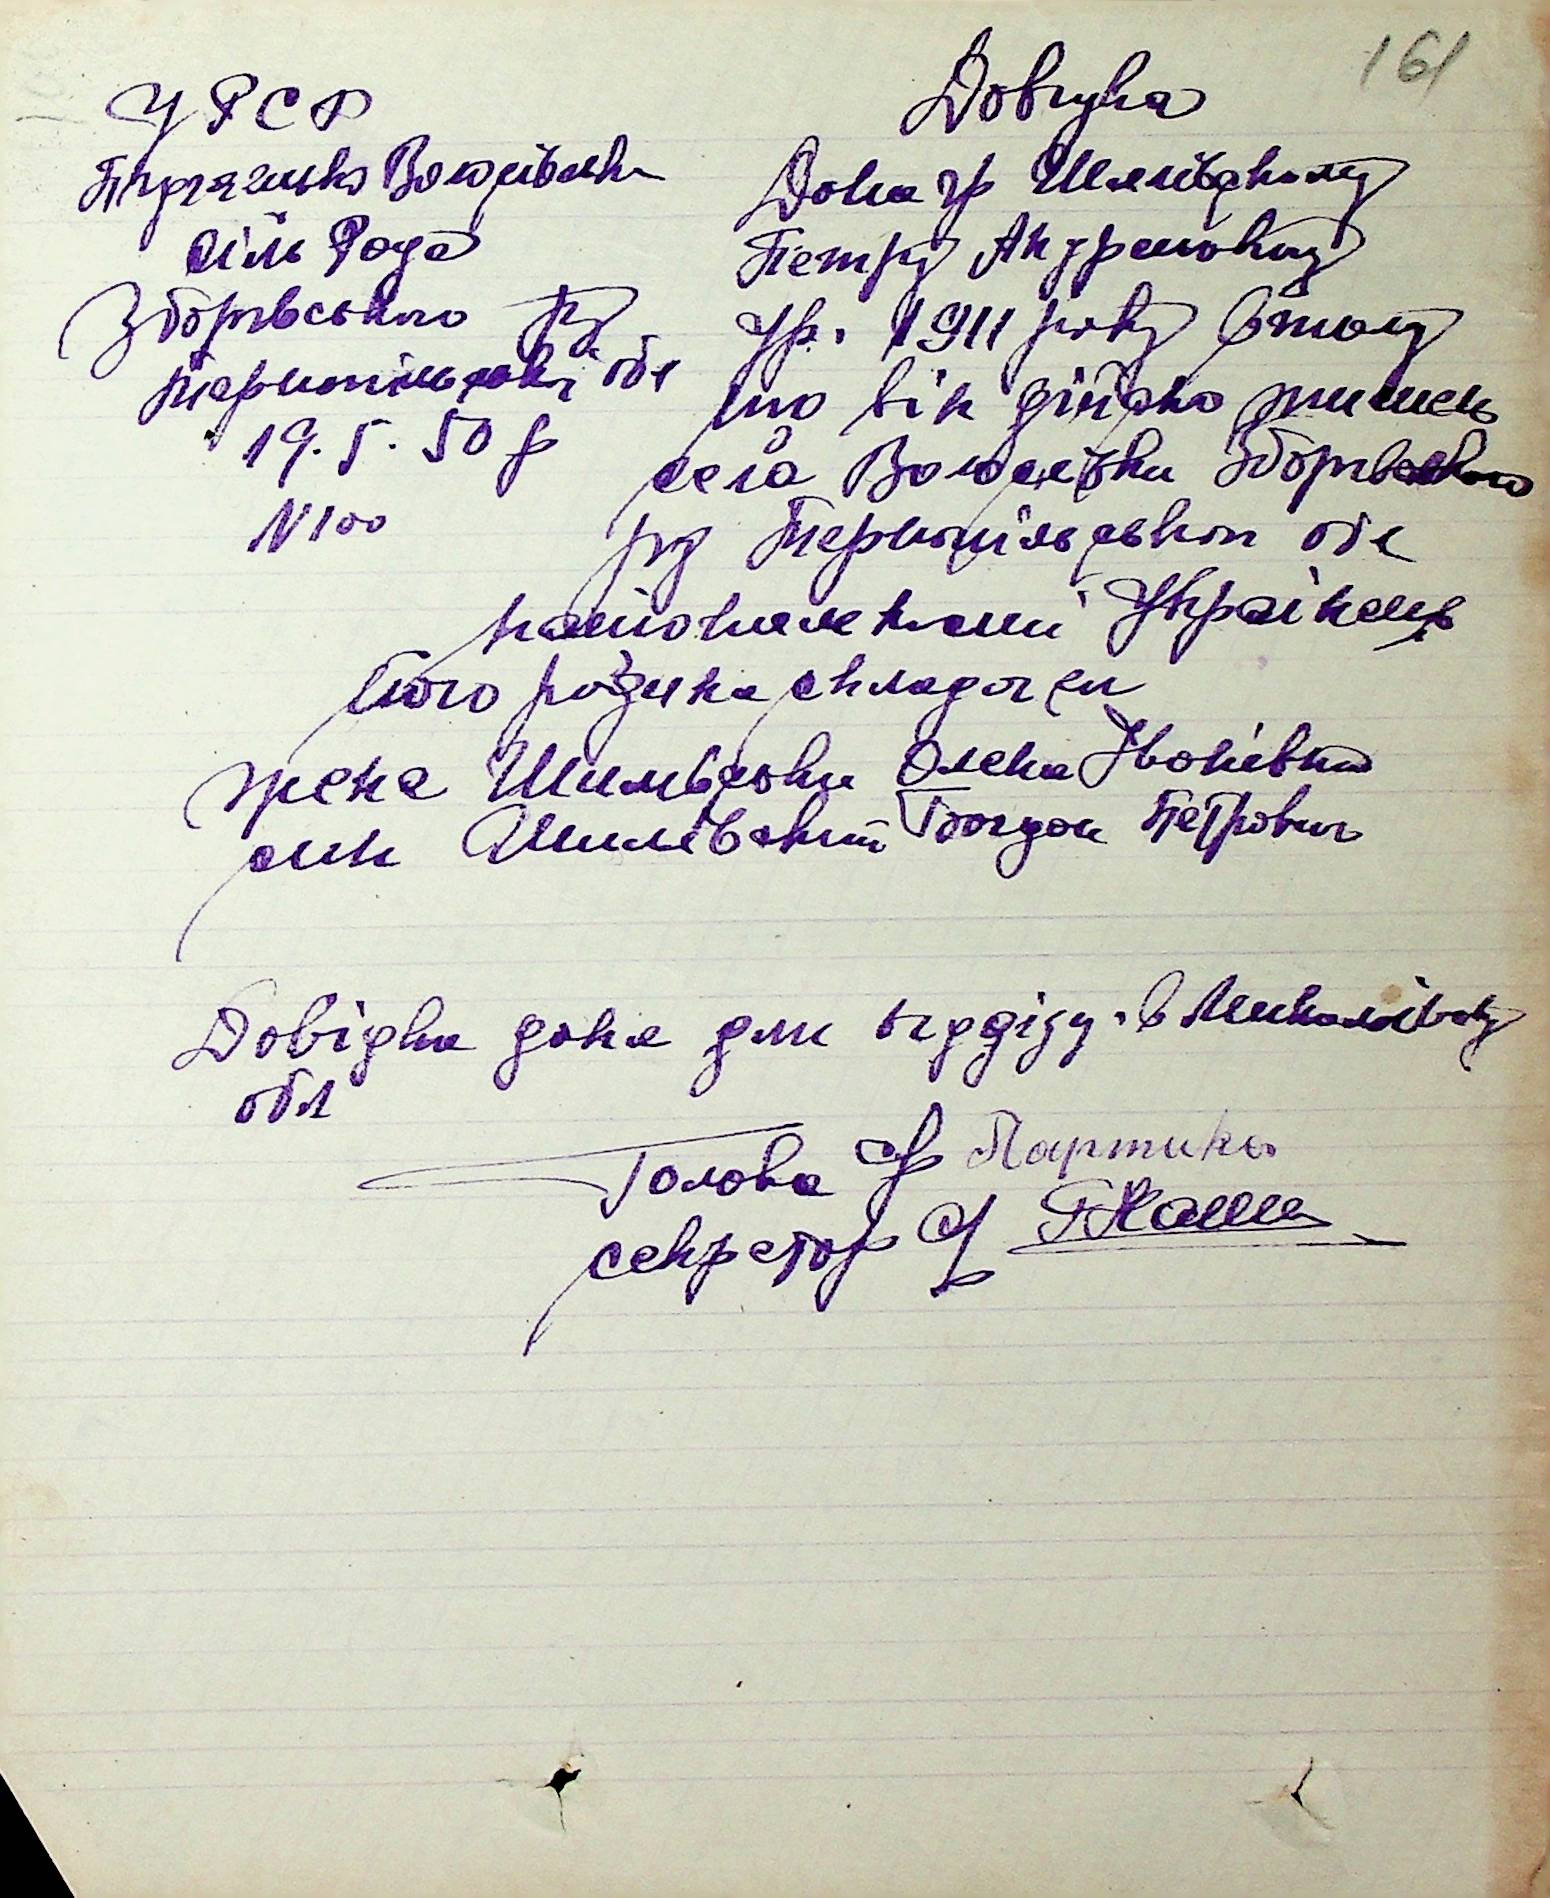 161
УРСР
Волосівська
сіль Рада
Зборівського рн
Тернопільської обл
19. 5. 50 р
N 100
Довідка
Дана гр Шилівському
Петру Андреновичу
ур. 1911 року втому
що він дійсно житель
села Волосівки Зборівського
рн Тернопільської обл
національности Українець
його родина складаєся
жена Шилівська Олена Іванівна
син Шилівский Богдан Петрович
Довідка дана для виїзду в Миколаівську
обл
Голова с/р Партика
секретар с/р